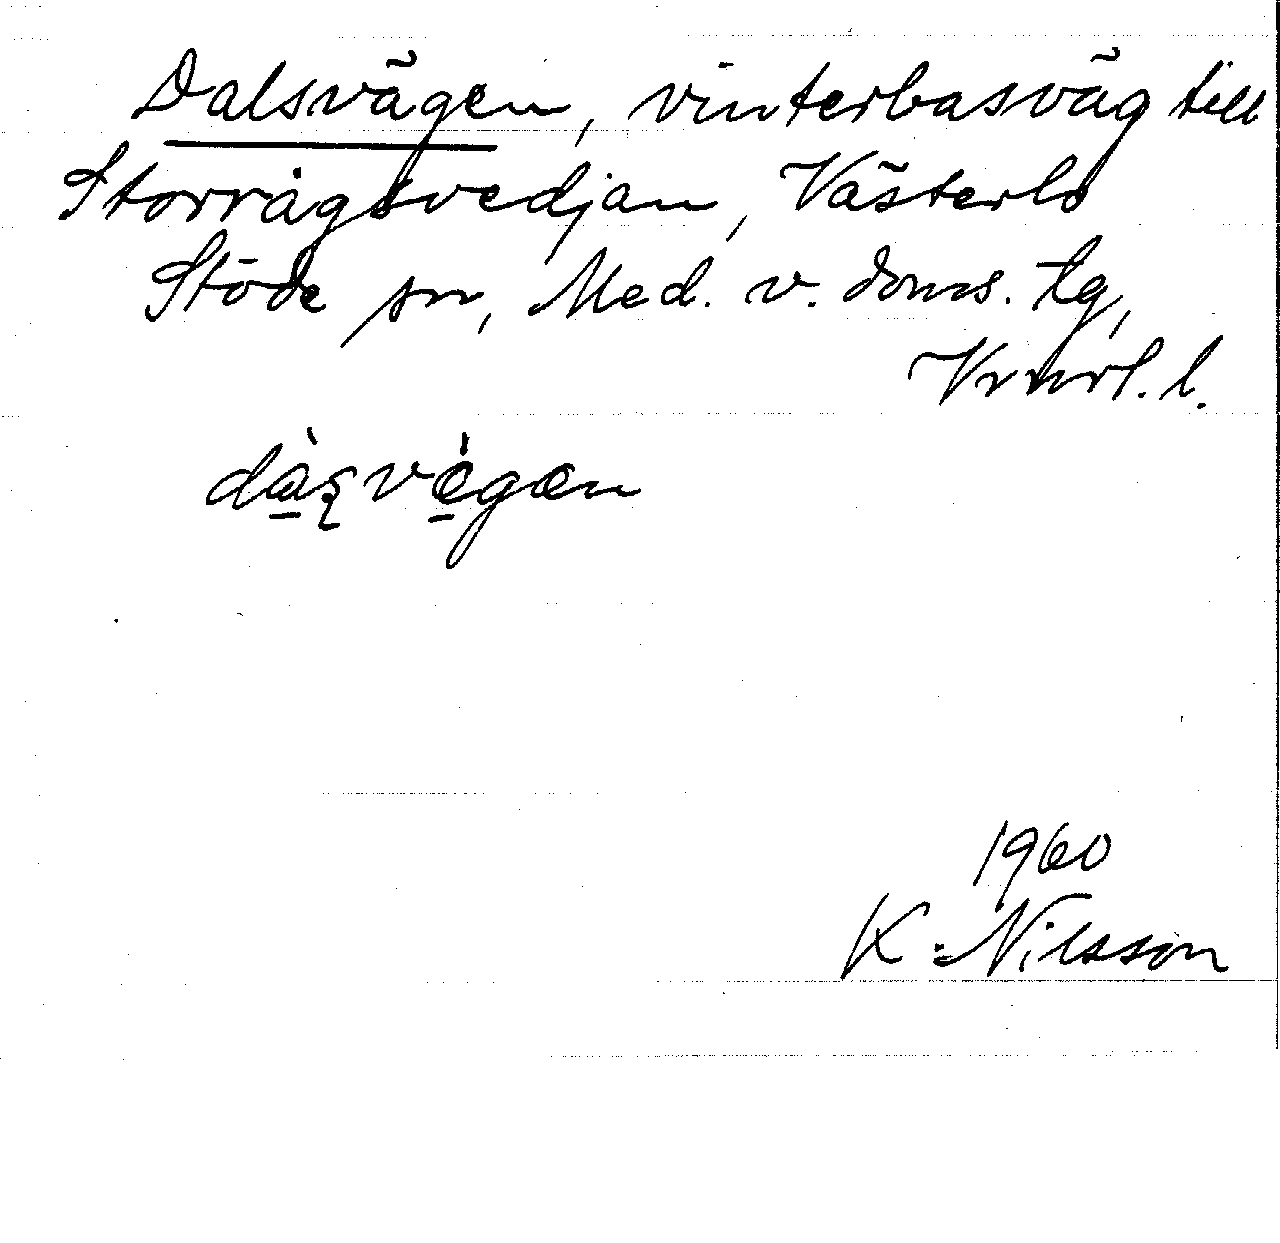 Dalsvägen, vinterbasväg till
Storrågsvedjan, Västerlo
Stöde sn, Med. v. doms. tg,
Vrnrl. l.
1960
K. Nilsson